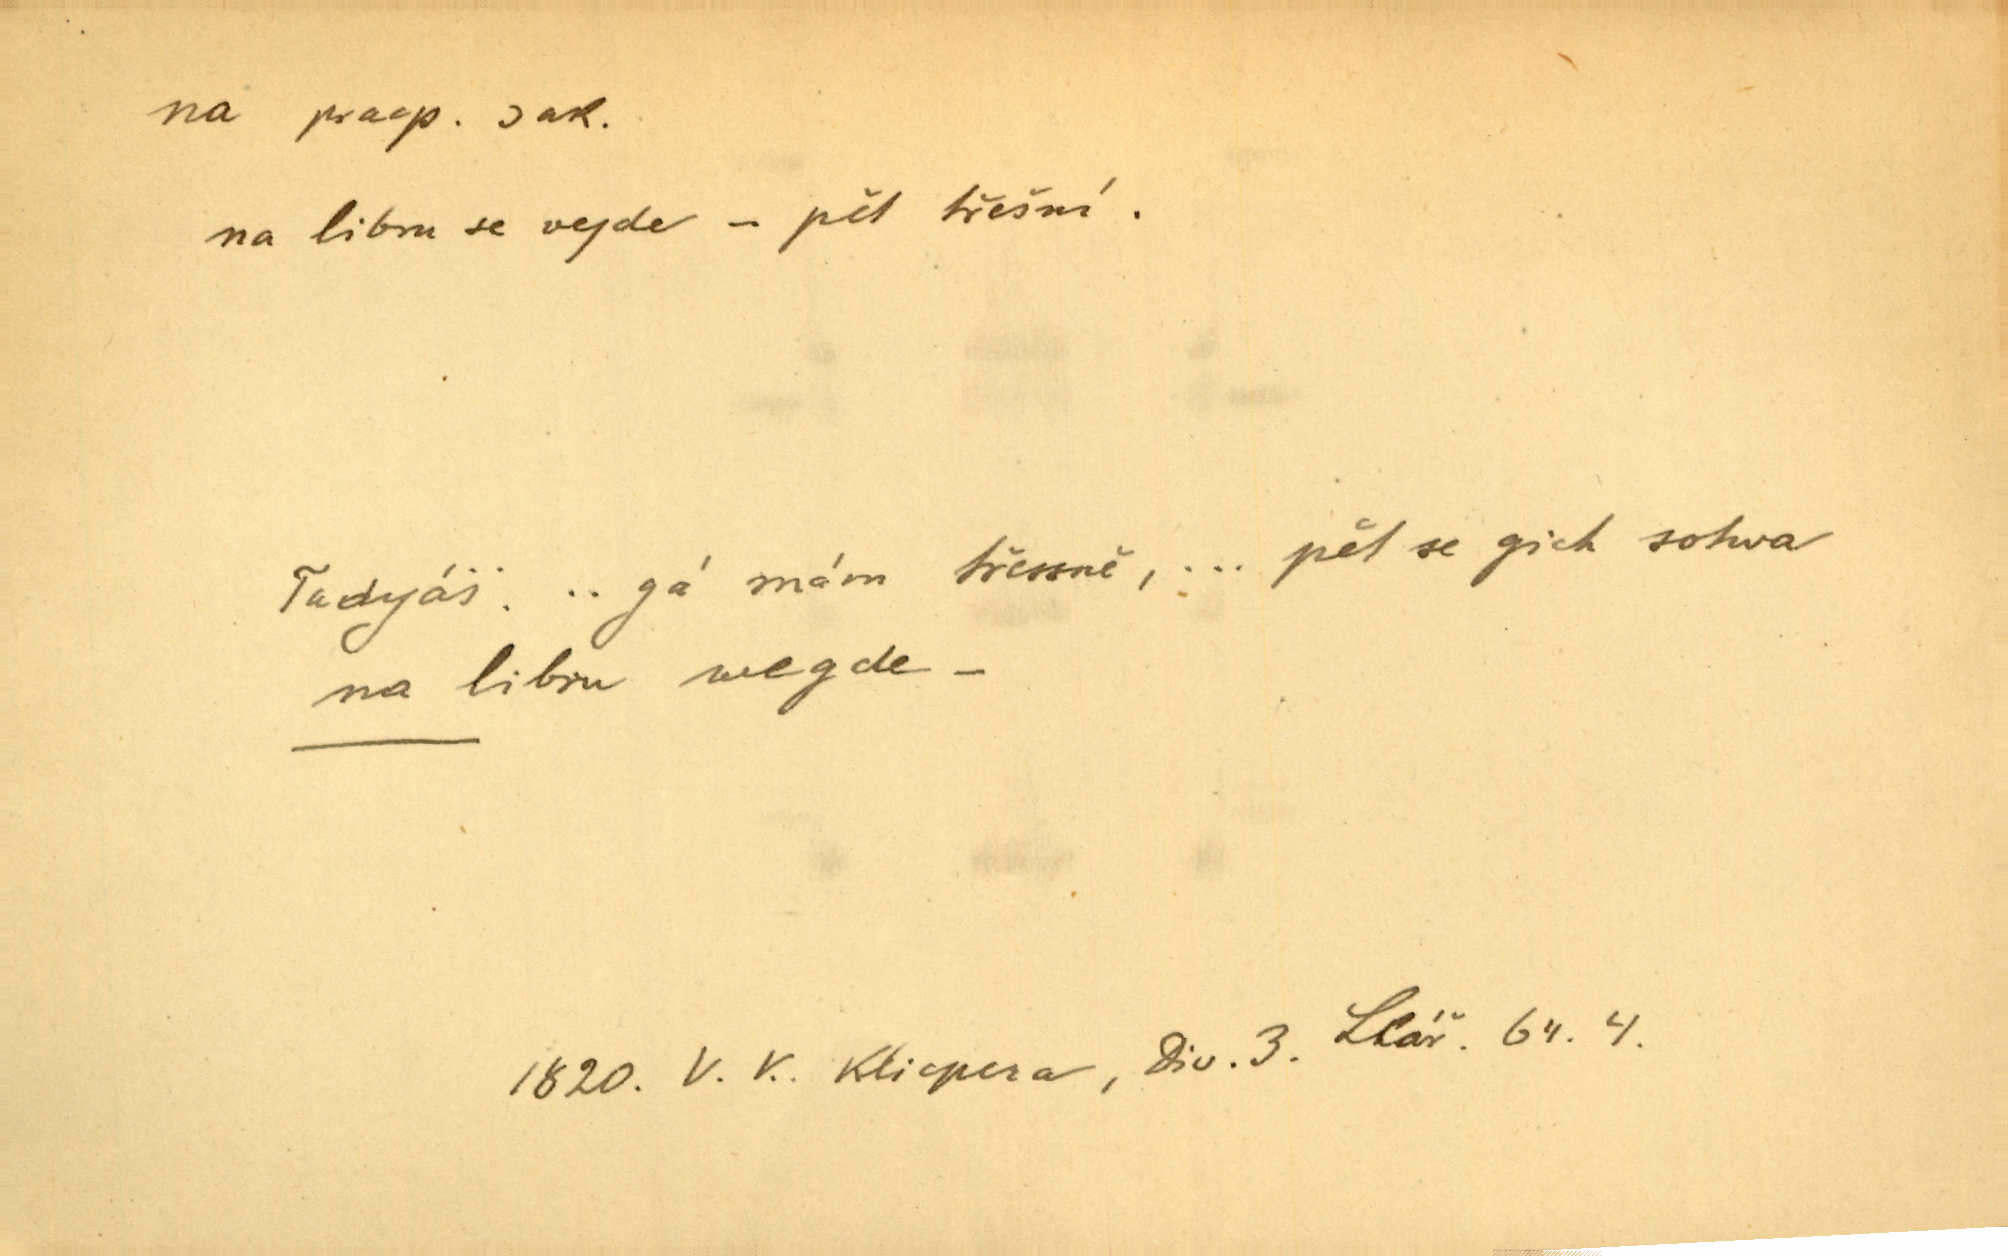 na praep. s ak.
na libru se vejde – pět třešní.
Tadyáš. .. gá mám třessně, ... pět se gich sotwa
na libru wegde –
1820. V. K. Klicpera, Div. 3. Lhář. 64. 4.